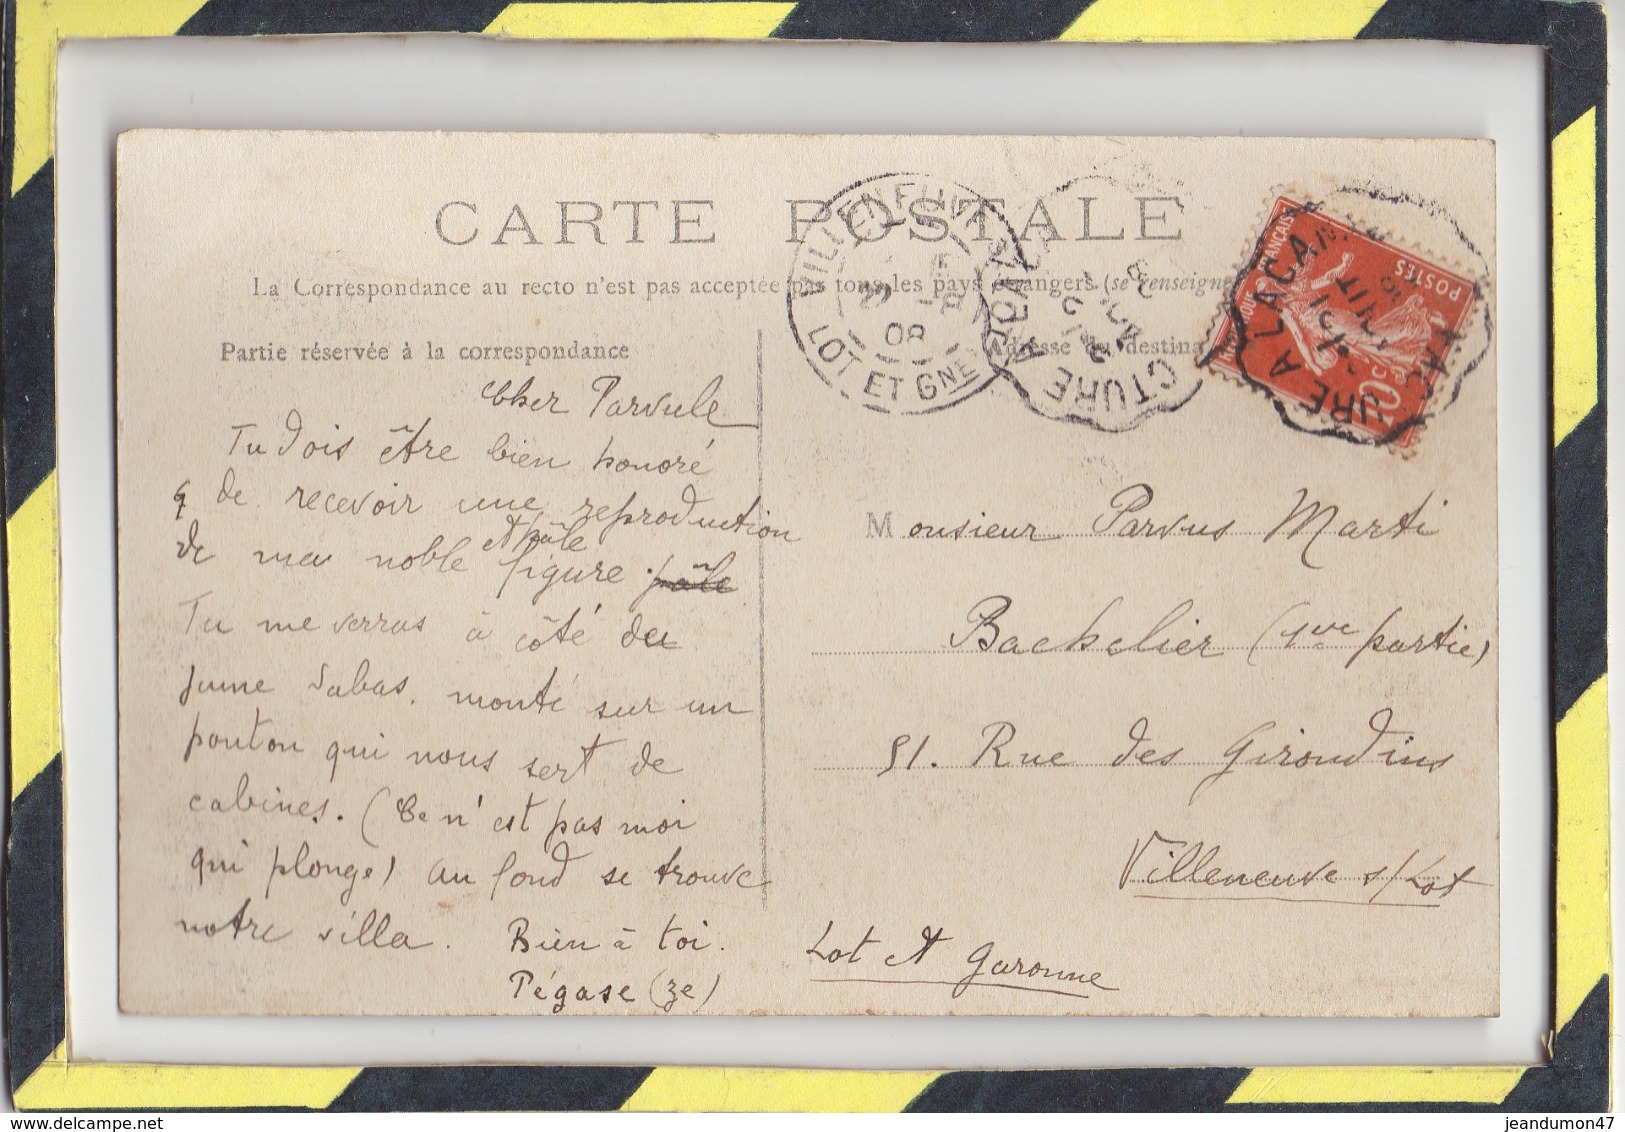 CARTE POSTALE
La Correspondance au recto n'est pas acceptée par tous les pays étrangers (se renseigne
Partie réservée à la correspondance
Adresse du destina
VILLENEUVE
08
LOT ET GNE
CTURE A LACAN
URE A LACAN
POSTES
10c
Cher Parvule
Tu dois être bien honoré
de recevoir une reproduction
et pâle
de ma noble figure. pâle
Tu me verras à côté du
jeune Dabas. monté sur un
ponton qui nous sert de
cabines. (Ce n'est pas moi
qui plonge) au fond se trouve
notre villa. Bien à toi.
Pégase (ze)
Monsieur Parvus Marti
Bachelier (1re partie)
51. Rue des Girondins
Villeneuve s/Lot
Lot et Garonne
jeandumon47